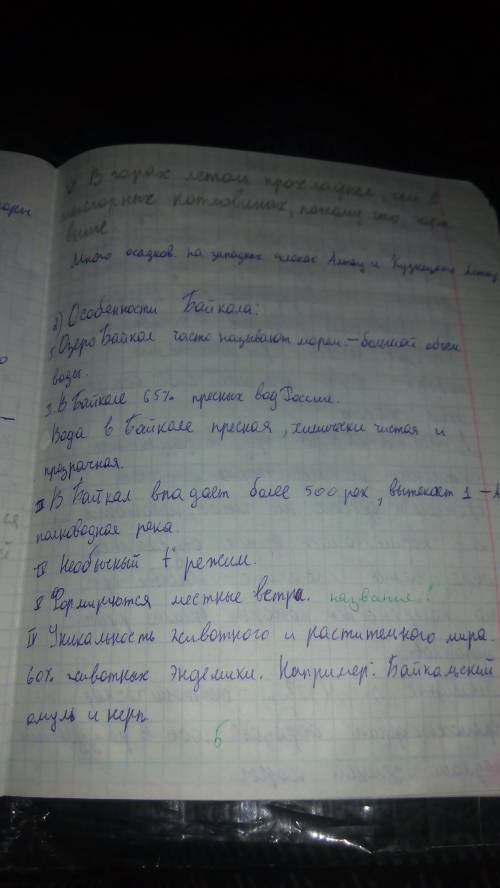 V В горах летом прохладнее, чем в
межгорных котловинах, потому что горы
выше
Много осадков. на западных склонах Алтая и Кузнецкого Алатау
2) Особенности Байкала:
I. Озеро Байкал часто называют морем. – большой объем
воды.
II. В Байкале 65% пресных вод России.
Вода в Байкале пресная, химически чистая и
прозрачная.
III В Байкал впадает более 500 рек, вытекает 1 – А
полноводная река.
IV Необычный t° режим.
V Формируются местные ветра. название!
IV Уникальность животного и растительного мира.
60% животных эндемики. Например: Байкальский
омуль и нерп
5